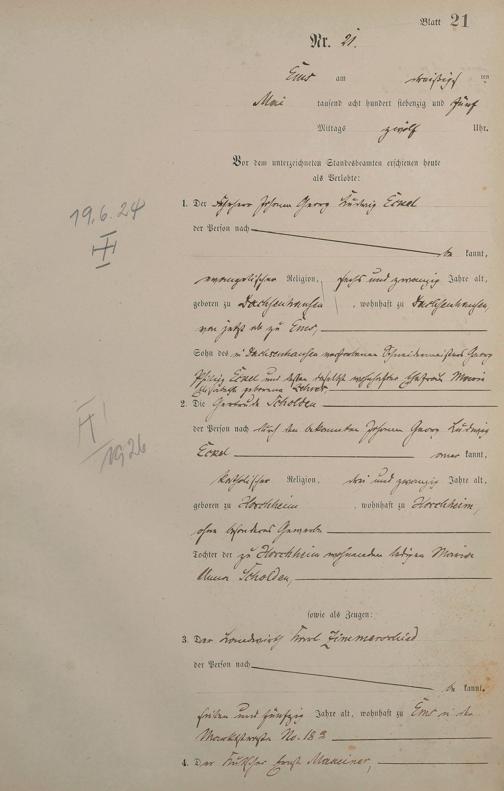 Blatt 21
Nr. 21.
Ems am dreißigsten
Mai tausend acht hundert siebenzig und fünf
Mittags zwölf Uhr.
Vor dem unterzeichneten Standesbeamten erschienen heute
als Verlobte:
1. Der Johann Georg Ludwig Eckel
der Person nach
be kannt,
evangelischer Religion, sechs und zwanzig Jahre alt,
geboren zu Dachsenhausen, wohnhaft zu Dachsenhausen,
von jetzt ab zu Ems,
Sohn des in Dachsenhausen verstorbenen Schneidermeisters Georg
Philipp Eckel und dessen daselbst wohnhafter Ehefrau Marie
Elisabeth geborene
2. Die Gertrude Scholden
der Person nach durch den bekannten Johann Georg Ludwig
Eckel aner kannt,
katholischer Religion, drei und zwanzig Jahre alt,
geboren zu Horchheim, wohnhaft zu Horchheim,
ohne besonderes Gewerbe
Tochter der zu Horchheim wohnenden ledigen Maria
Anna Scholden,
sowie als Zeugen:
3. Der Landwirth Karl Zimmerschied
der Person nach
be kannt,
sieben und fünfzig Jahre alt, wohnhaft zu Ems in der
Marktstraße No. 183
4. Der Kutscher Ernst
19.6.24
H
H
1926